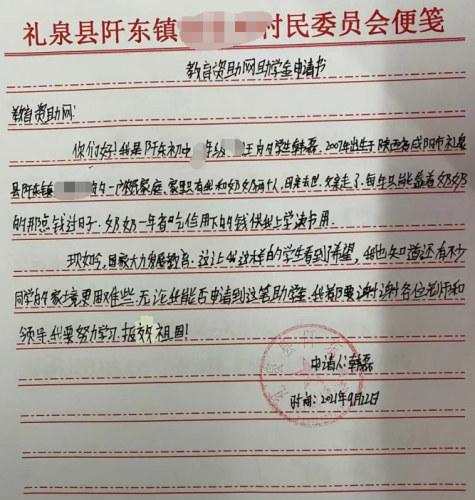 礼泉县阡东镇 村民委员会便笺
教育资助网助学金申请书
教育资助网:
你们好!我是阡东初中 年级 班的学生韩磊,2007年出生于陕西省咸阳市礼泉
县阡东镇 的一户贫低家庭,家里只有我和奶奶两个人,日亲去世,父亲走了,每年只能靠着奶奶
的那点钱过日子,奶奶一年省吃俭用下的钱供我上学读书用.
现如今,国家大力发展教育,这让我这样的学生看到了希望,我也知道还有不少
同学的家境更困难些,无论我能否申请到这笔助学金,我都要谢谢各位老师和
领导,我要努力学习,报效祖国!
申请人:韩磊
时间:2021年9月22日